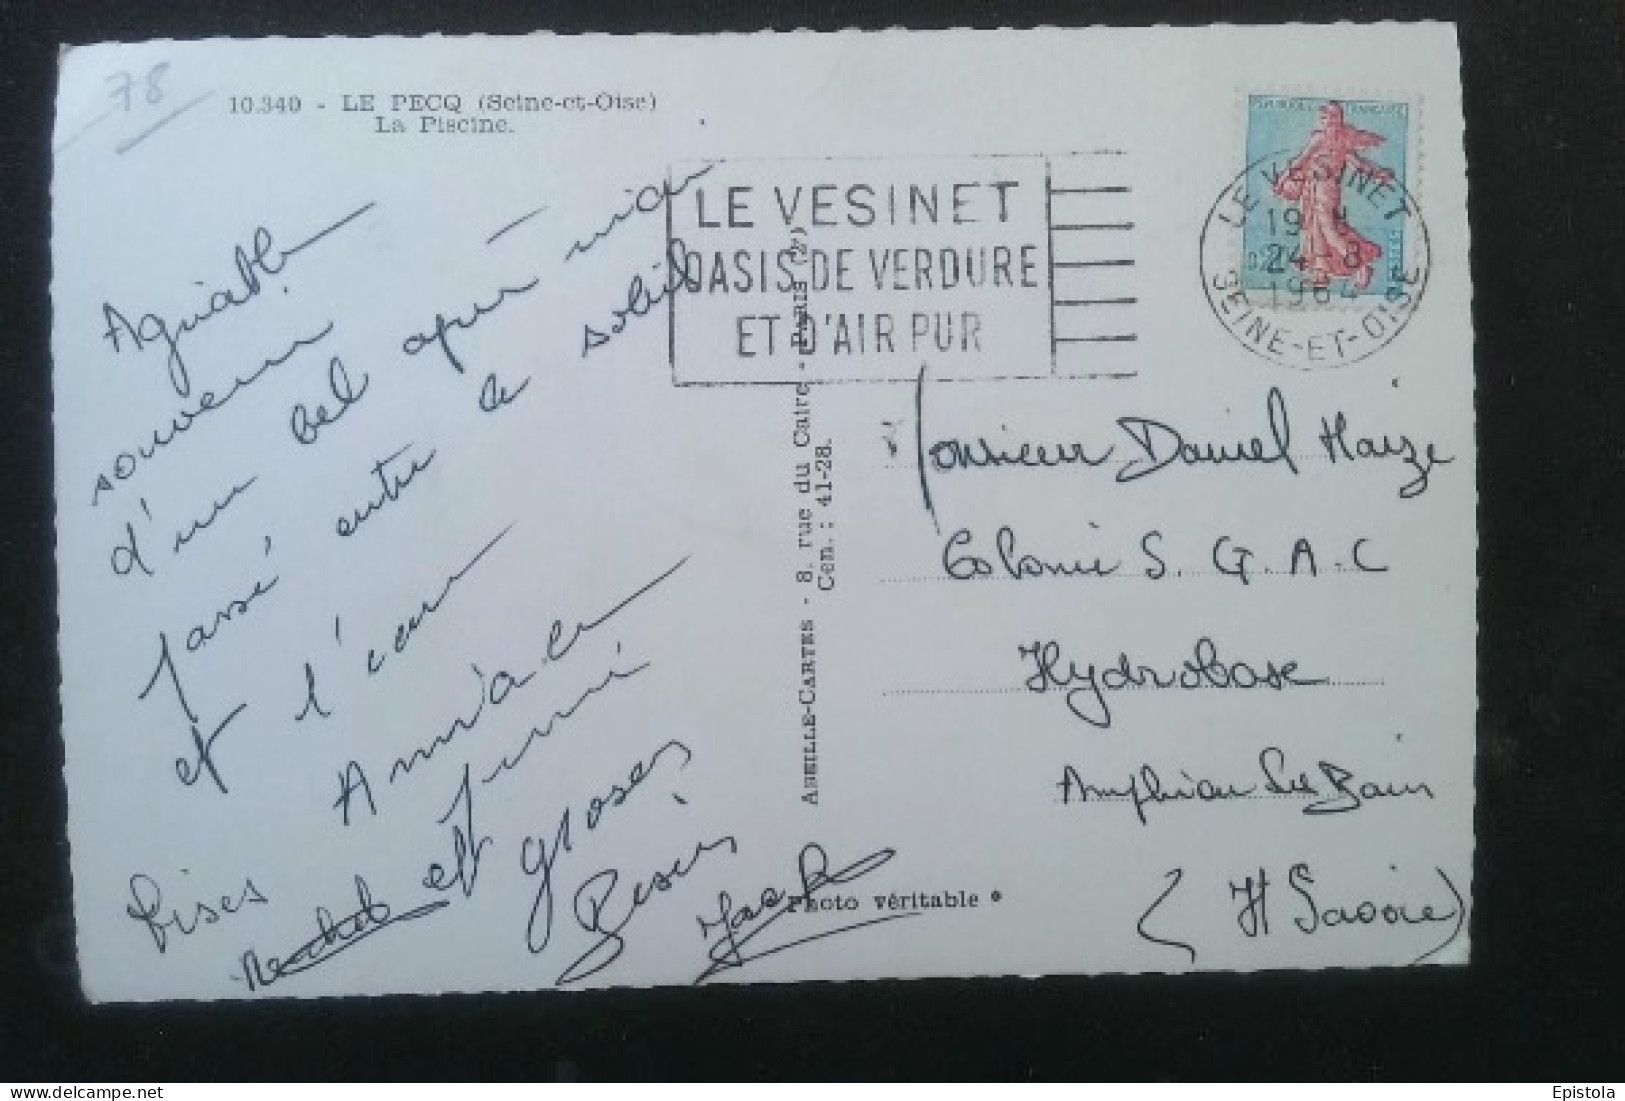 78
10.340 - LE PECQ (Seine-et-Oise)
La Piscine.
LE VESINET
OASIS DE VERDURE
ET D'AIR PUR
REPUBLIQUE FRANÇAISE
LE VESINET
19 H
24-8
1964
SEINE-ET-OISE
Agréable
souvenir
d'un bel après midi
passé entre le soleil
et l'eau
Amicale
pensé
Bises et grosses
Bises
ABEILLE-CARTES - 8, rue du Caire - PARIS (2e)
Cen. : 41-28.
Photo véritable
Monsieur Daniel Haize
Colonie S. G. A. C
Hydrobase
Amphion les Bain
(H Savoie)
Epistola